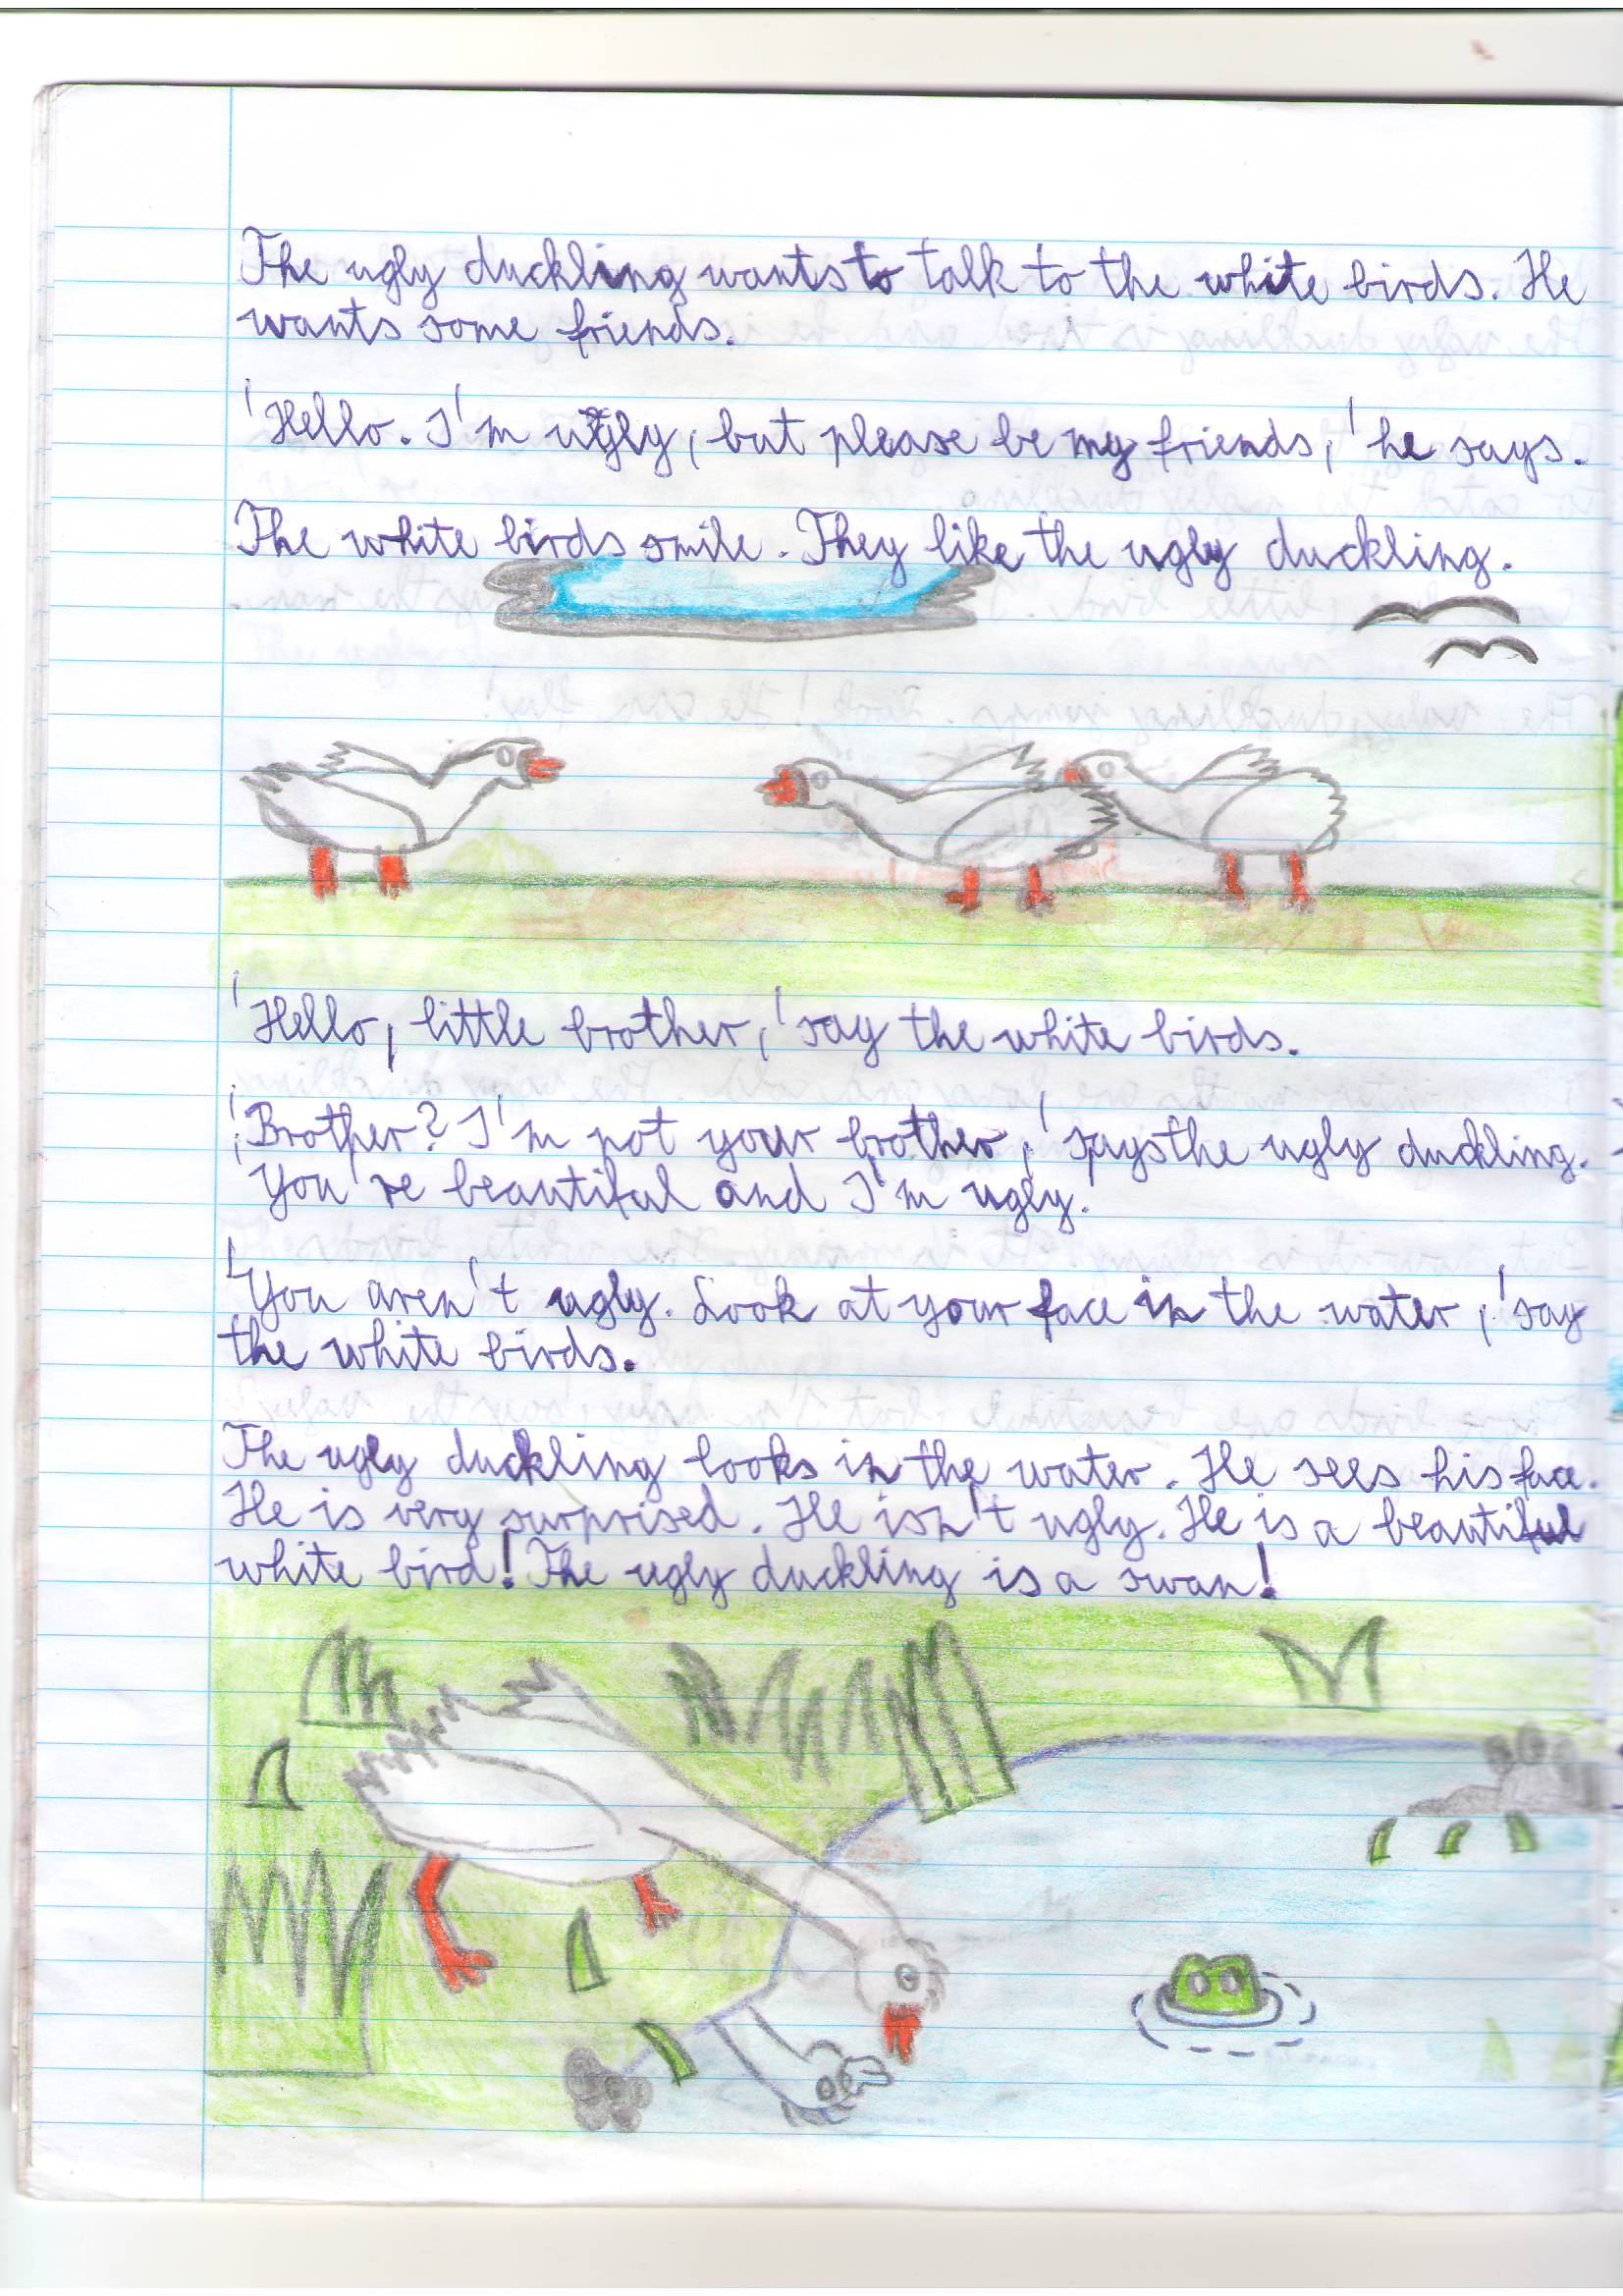 The ugly duckling wants to talk to the white birds. He
wants some friends.
'Hello. I'm ugly, but please be my friends,' he says.
The white birds smile. They like the ugly duckling.
'Hello, little brother,' say the white birds.
'Brother? I'm not your brother,' says the ugly duckling.
'You're beautiful and I'm ugly.'
'You aren't ugly. Look at your face in the water,' say
the white birds.
The ugly duckling looks in the water. He sees his face.
He is very surprised. He isn't ugly. He is a beautiful
white bird! The ugly duckling is a swan!